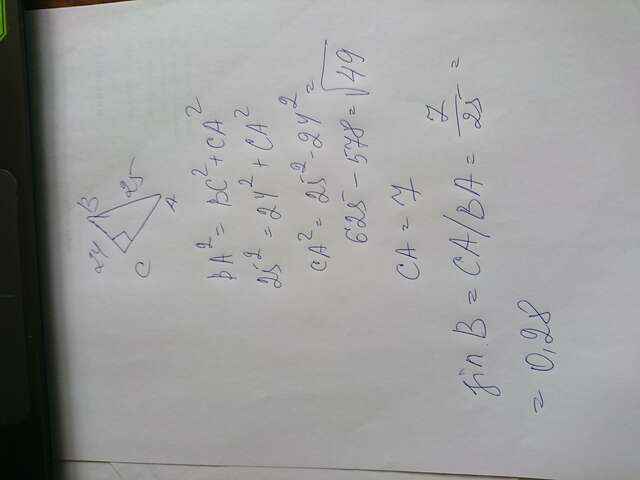 B
25
24
A
C
BA² = BC² + CA²
25² = 24² + CA²
CA² = 25² - 24² =
625 - 578 = √49
CA = 7
sin B = CA/BA = 7/25 =
= 0,28